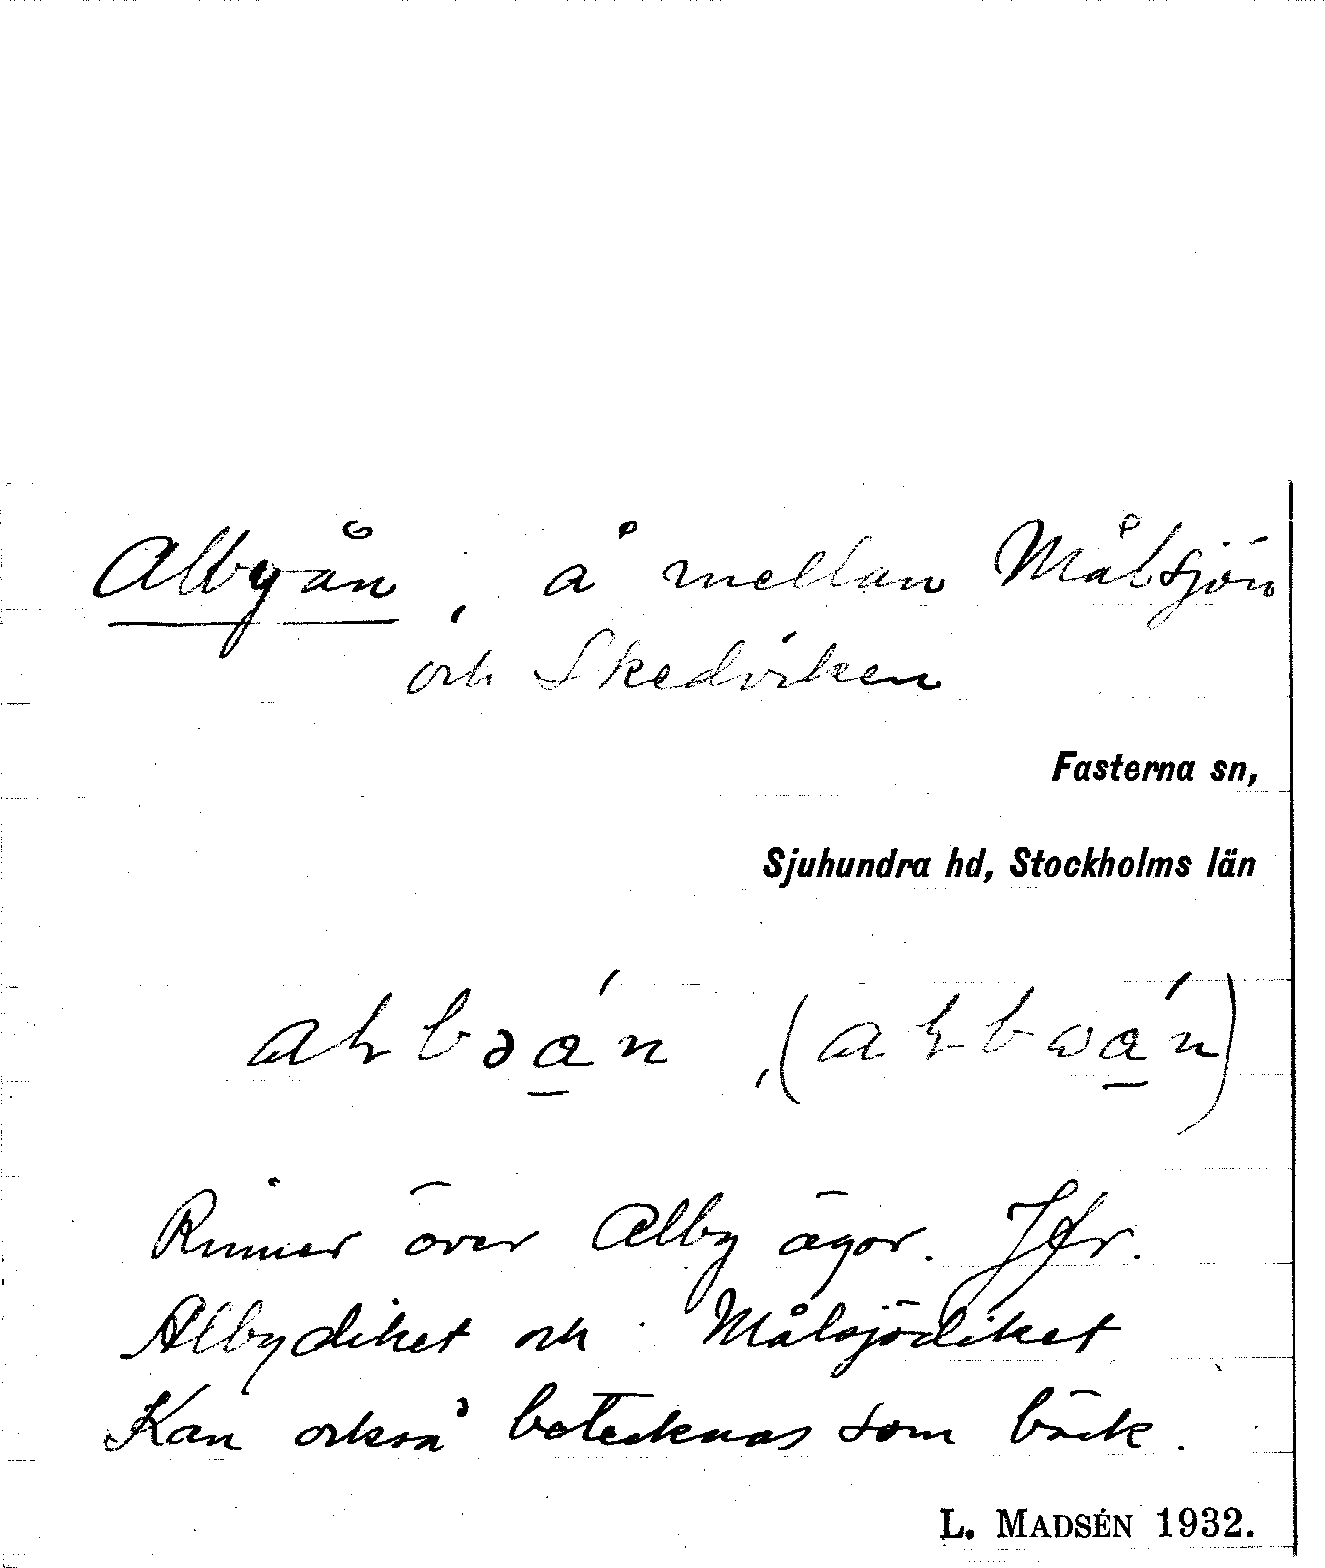 Albyån, å mellan Målsjön
och Skedviken
Fasterna sn,
Sjuhundra hd, Stockholms län
Rinner över Alby ägor. Jfr.
Albydiket och Målsjödiket
Kan också betecknas som bäck.
L. MADSÉN 1932.